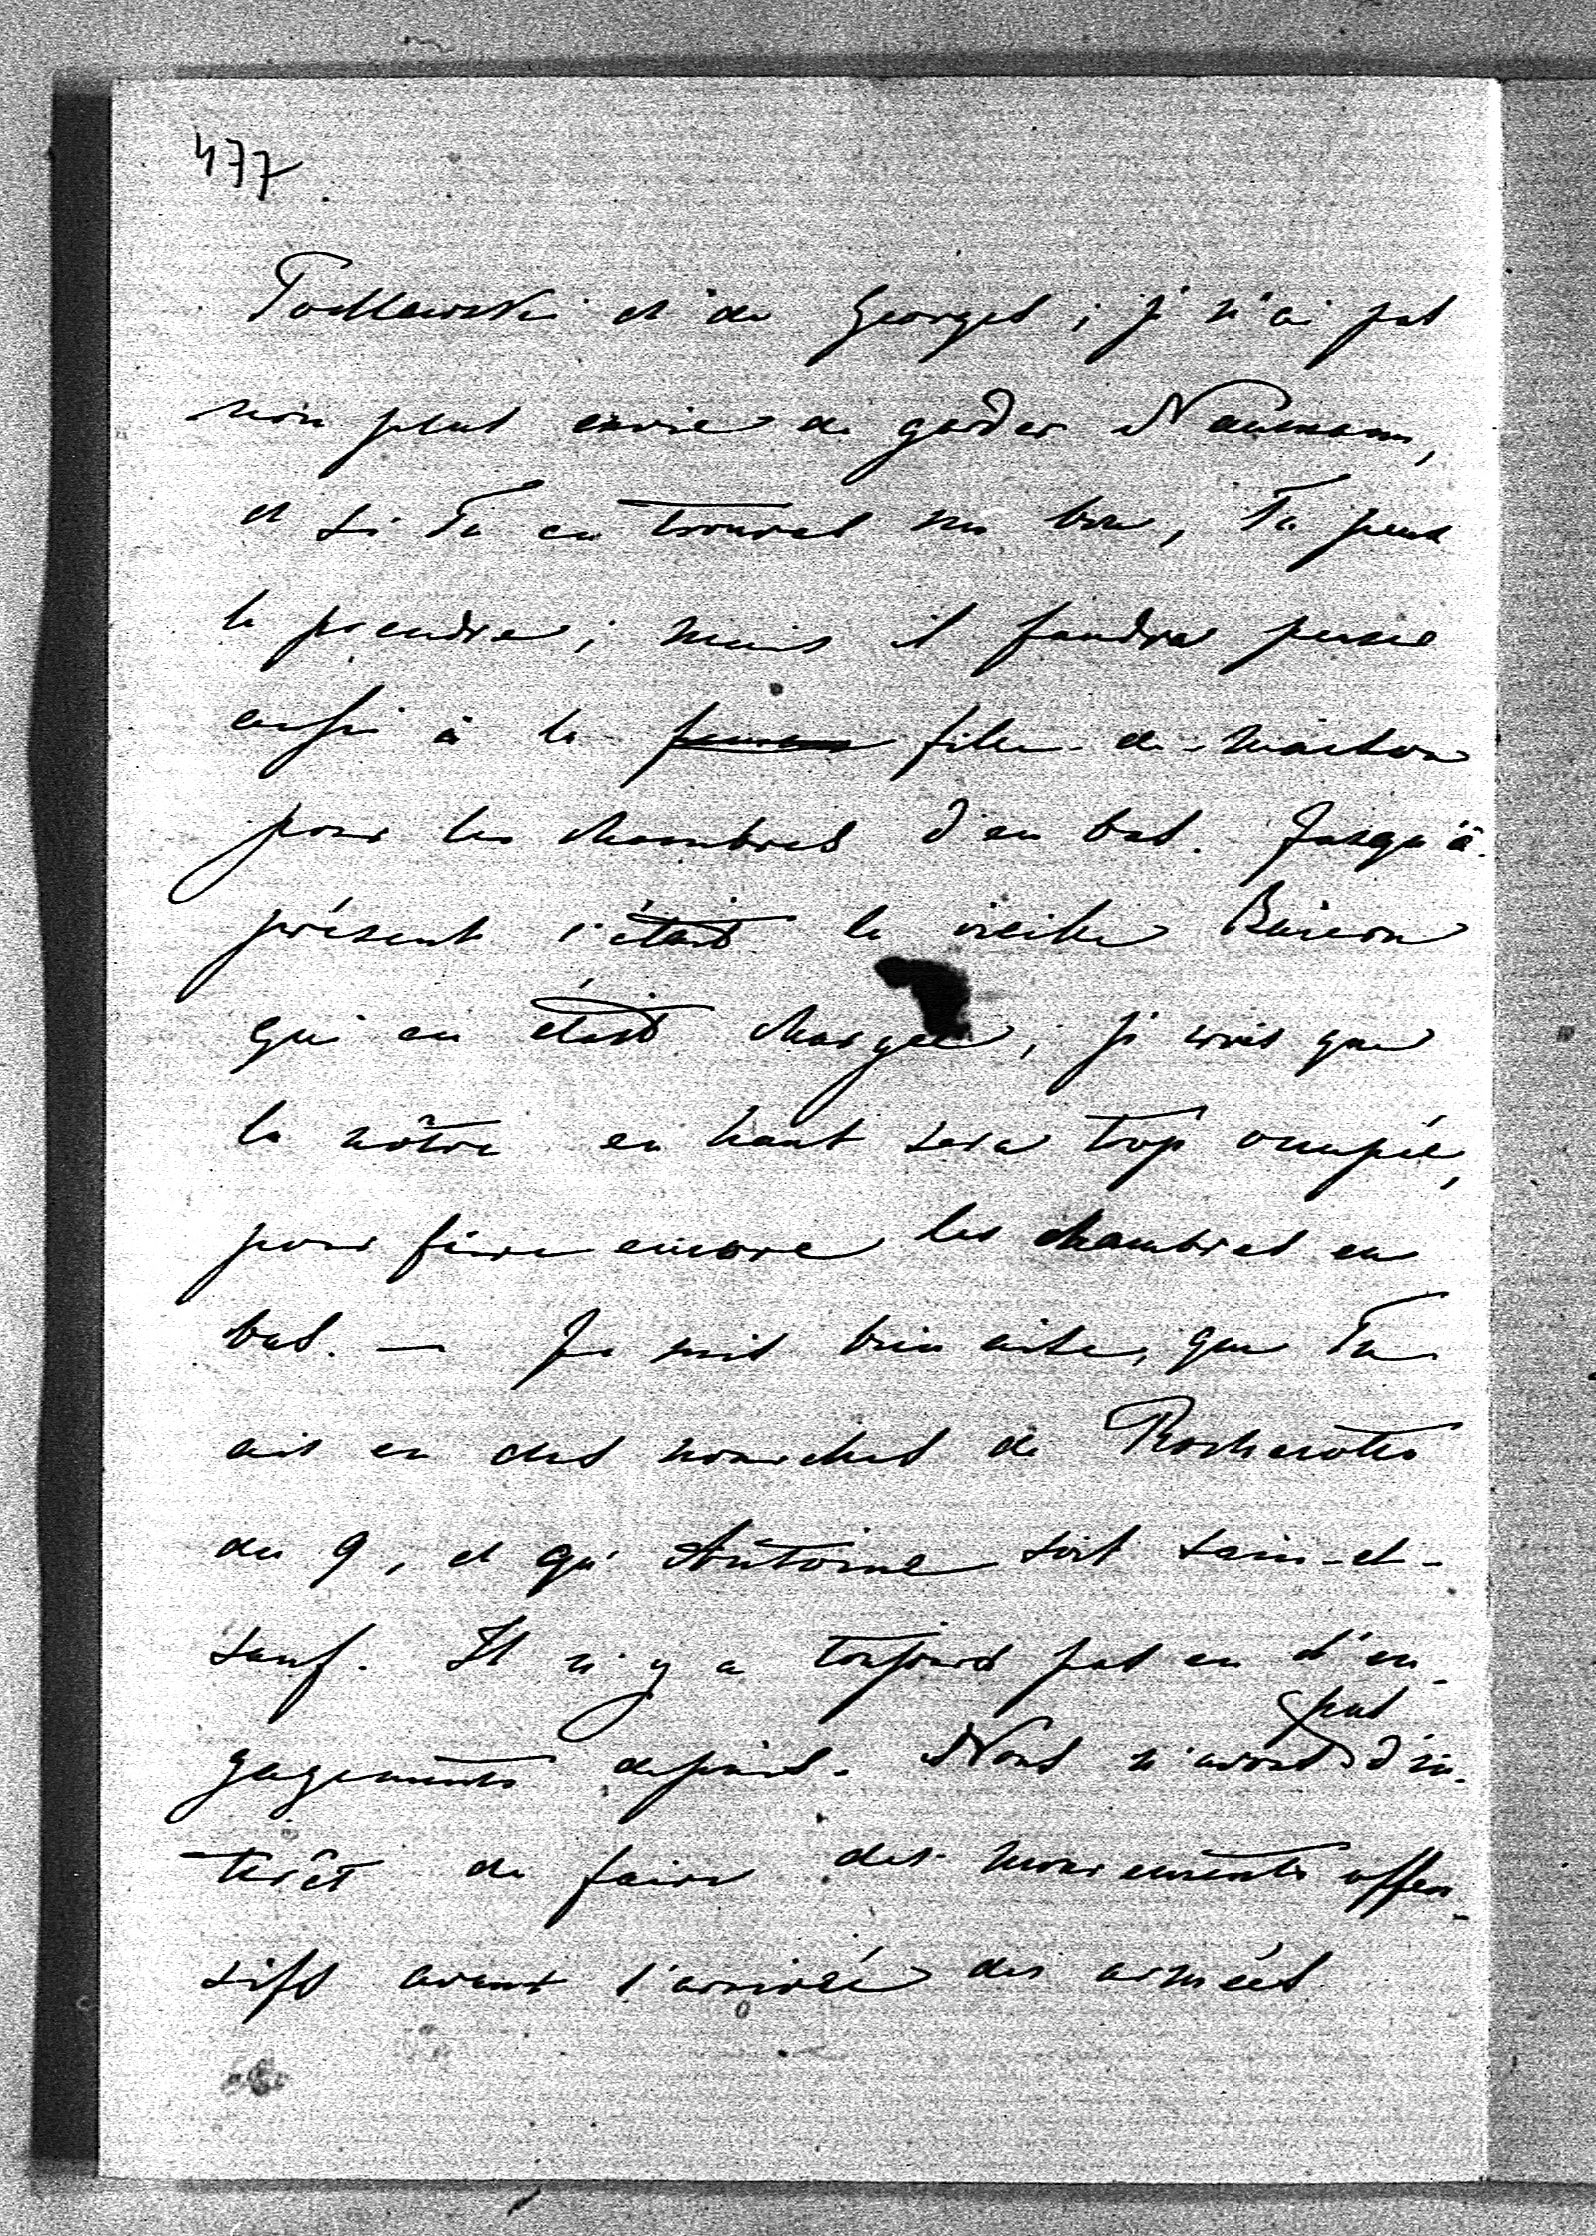 477
et de Georges ; je n'ai pas
non plus envie de garder Naumann,
et si Tu en trouves un bon, Tu peux
le prendre ; mais il faudra penser
aussi à la fille-de-maison
pour les chambres d'en bas. Jusqu'à-
présent c'était la vieille
qui en était chargée ; je crois que
la nôtre en haut sera trop occupée,
pour faire encore les chambres en
bas. — Je suis bien aise, que Tu
ais eu des nouvelles de
du 9, et qu'Antoine soit sain-et-
sauf. Il n'y a toujours pas eu d'en-
gagements depuis. Nous n'avons pas d'in-
térêt de faire des mouvements offen-
sifs avant l'arrivée des armées